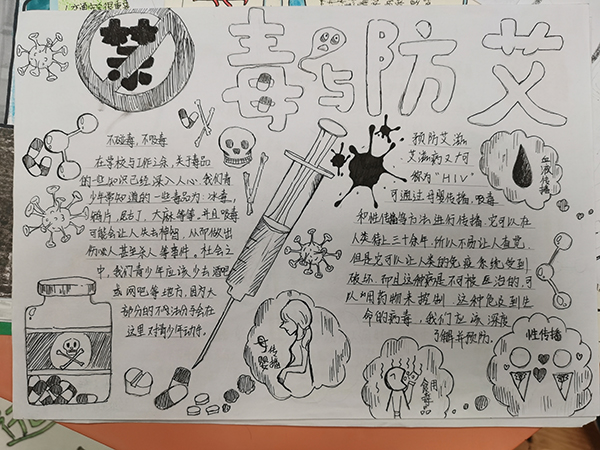 禁毒与防艾
不碰毒，不吸毒
在学校与工作之余，关于毒品
的一些知识已经深入人心。我们青
少年常知道的一些毒品为：冰毒，
鸦片，大麻等等，并且吸毒
可能会让人失去神智，从而做出
伤害人甚至杀人等事件。社会之
中，我们青少年应该少去酒吧
或网吧等地方，因为大
部分的不良分子会在
这里对青少年动手。
预防艾滋
艾滋病又叫
称为“HIV”
可通过母婴传播，吸毒
和性传播等方法进行传播。它可以在
人类待上三十余年，所以不易让人察觉，
但是它可以让人类的免疫系统受到
破坏，而且这种病是不可被医治的，可
以用药物来控制，这种危及到生
命的病毒，我们应该深度
了解并预防。
血液传播
母婴传播
食用毒品
性传播